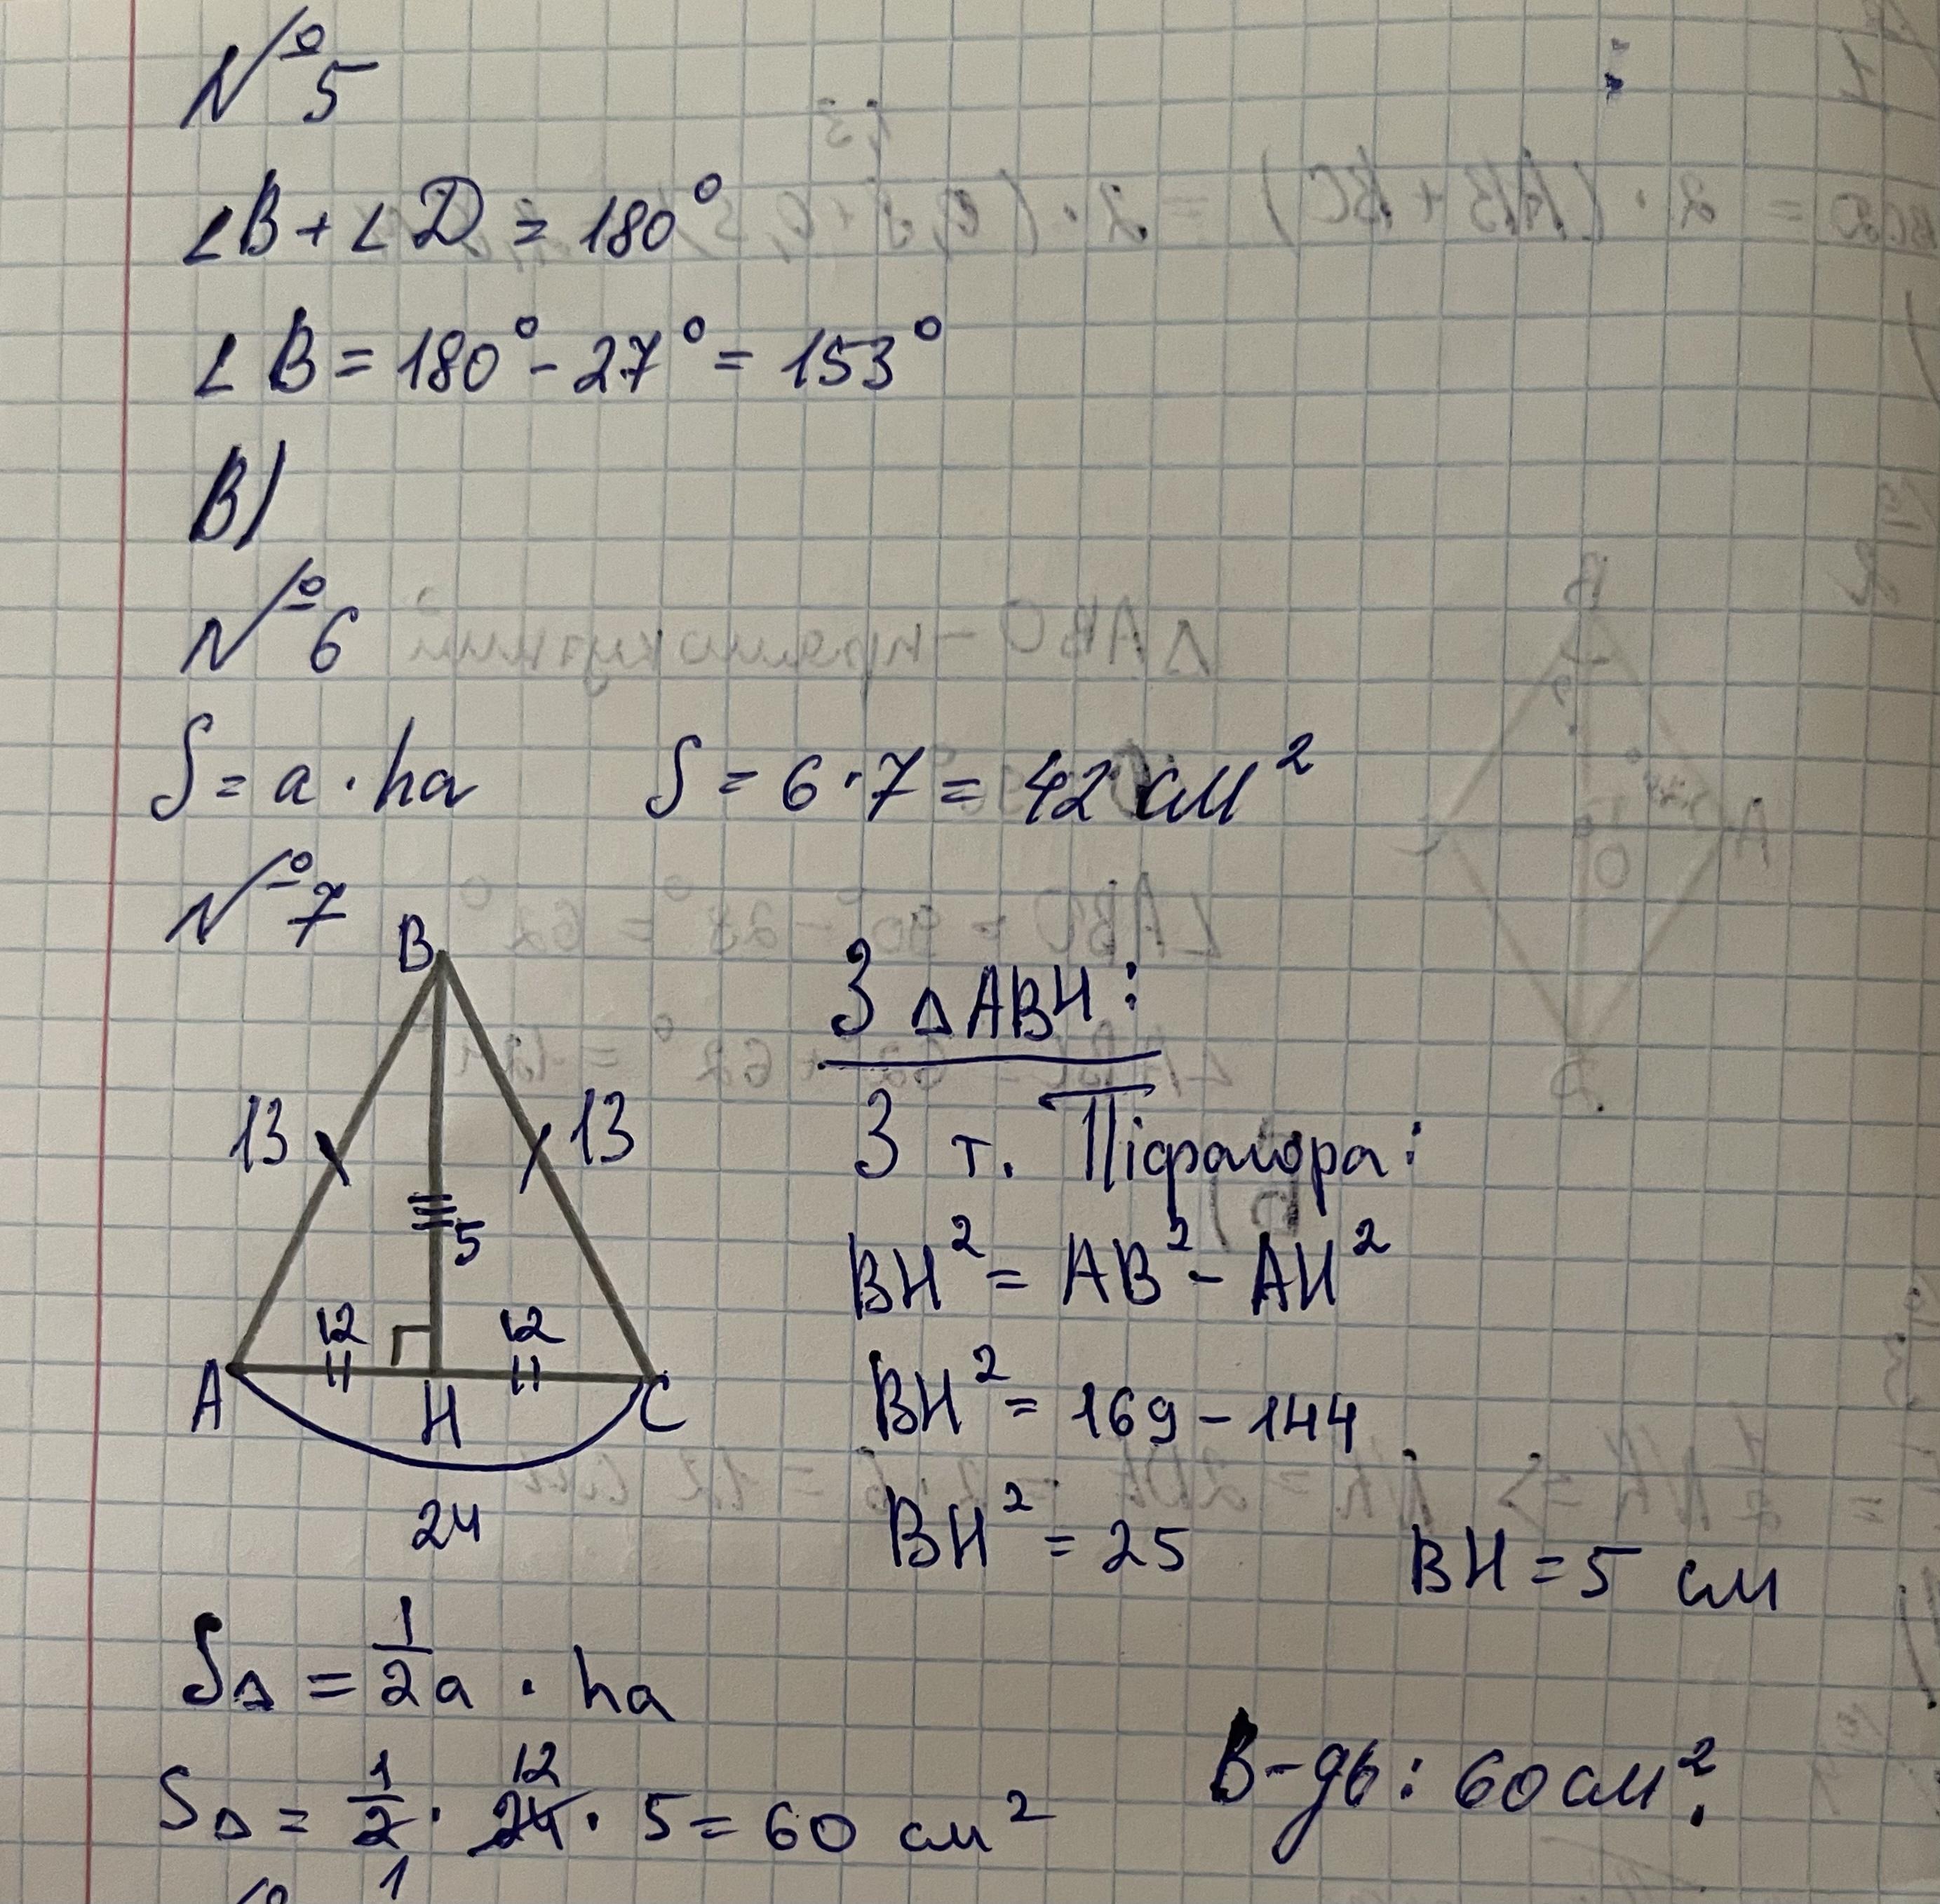 №5
∠B + ∠D = 180°
∠B = 180° - 27° = 153°
В)
№6
S = a · ha S = 6 · 7 = 42 см²
№7
B
13 13
5
12 12
A H C
24
З △ABH:
З т. Піфагора:
BH² = AB² - AH²
BH² = 169 - 144
BH² = 25 BH = 5 см
S△ = 1/2 a · ha
12
S△ = 1/2 · 24 · 5 = 60 см²
1
В-дь: 60 см².